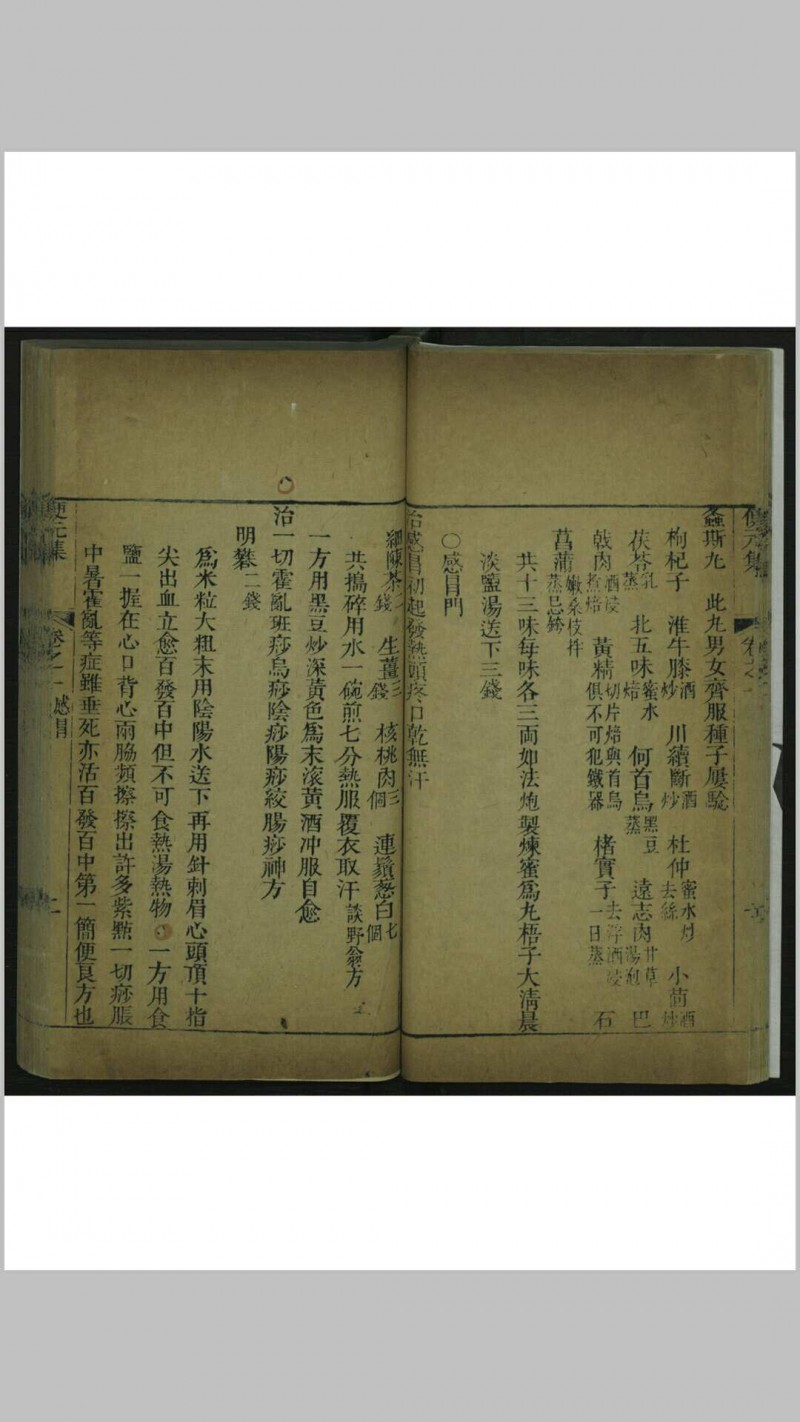 螽斯丸　此丸男女齊服種子屢驗
枸杞子　淮牛膝酒炒　川續斷酒炒　杜仲蜜水炒去絲　小茴酒炒
茯苓乳蒸　北五味蜜水焙　何首烏黑豆蒸　遠志肉甘草湯　巴
戟肉酒浸焙　黃精切片焙與首烏俱不可犯鐵器　楮實子去浮酒浸一日蒸　石
菖蒲嫩桑枝拌蒸
共十三味每味各三両如法炮製煉蜜爲丸梧子大淸晨
淡鹽湯送下三錢
○感冒門
治感冒初起發熱頭疼口乾無汗
細陳茶錢　生薑三錢　核桃肉三個　連鬚葱白七個
共搗碎用水一碗煎七分熱服覆衣取汗談野翁方
一方用黑豆炒深黃色爲末滾黃酒冲服自愈
治一切霍亂班痧烏痧陰痧陽痧絞腸痧神方
明礬二錢
爲米粒大粗末用陰陽水送下再用針刺眉心頭頂十指
尖出血立愈百發百中但不可食熱湯熱物　一方用食
鹽一握在心口背心兩脇頻擦擦出許多紫㸃一切痧脹
中暑霍亂等症雖垂死亦活百發百中第一簡便良方也
便元集　卷之一　感冒